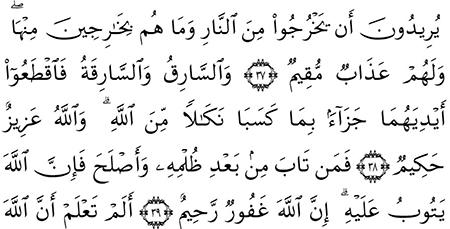 يُرِيدُونَ أَن يَخْرُجُوا۟ مِنَ ٱلنَّارِ وَمَا هُم بِخَـٰرِجِينَ مِنْهَا ۖ
وَلَهُمْ عَذَابٌ مُّقِيمٌ ﴿٣٧﴾ وَٱلسَّارِقُ وَٱلسَّارِقَةُ فَٱقْطَعُوٓا۟
أَيْدِيَهُمَا جَزَآءًۢ بِمَا كَسَبَا نَكَـٰلًا مِّنَ ٱللَّهِ ۗ وَٱللَّهُ عَزِيزٌ
حَكِيمٌ ﴿٣٨﴾ فَمَن تَابَ مِنۢ بَعْدِ ظُلْمِهِۦ وَأَصْلَحَ فَإِنَّ ٱللَّهَ
يَتُوبُ عَلَيْهِ ۗ إِنَّ ٱللَّهَ غَفُورٌ رَّحِيمٌ ﴿٣٩﴾ أَلَمْ تَعْلَمْ أَنَّ ٱللَّهَ